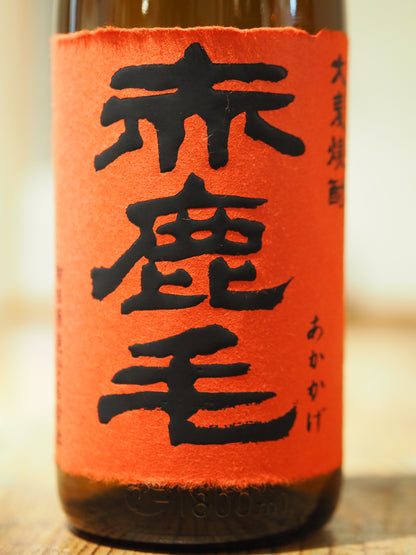 大麦焼酎
赤鹿毛
あかかげ
1800ml